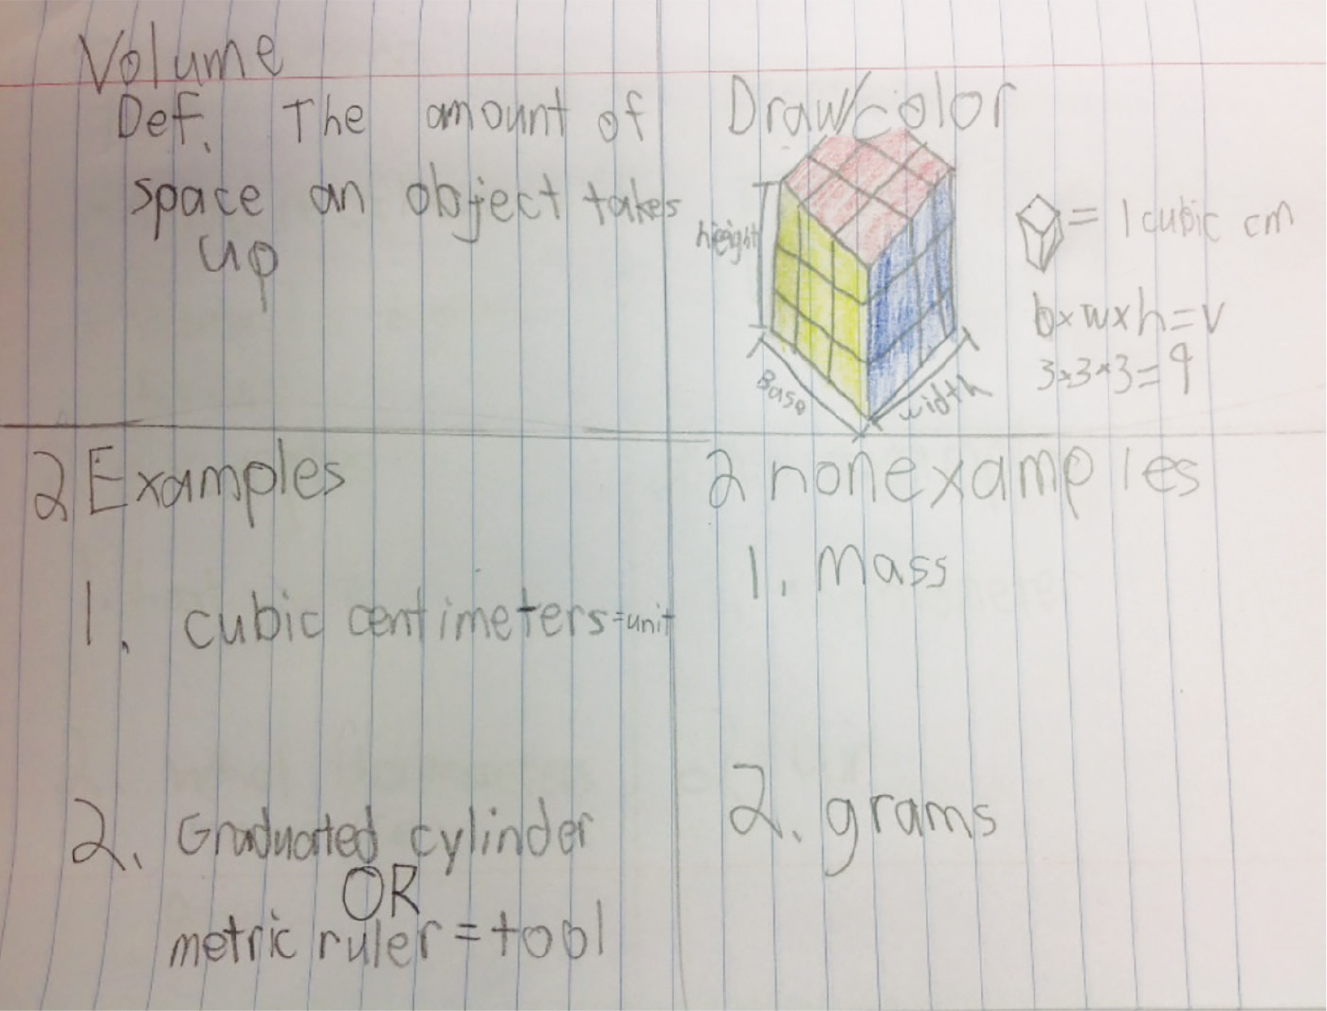 Volume
Def. The amount of
space an object takes
up
Draw/color
height
Base
width
= 1 cubic cm
b×w×h=V
3×3×3=9
2 Examples
1. cubic centimeters=unit
2. Graduated cylinder
OR
metric ruler = tool
2 nonexamples
1. Mass
2. grams